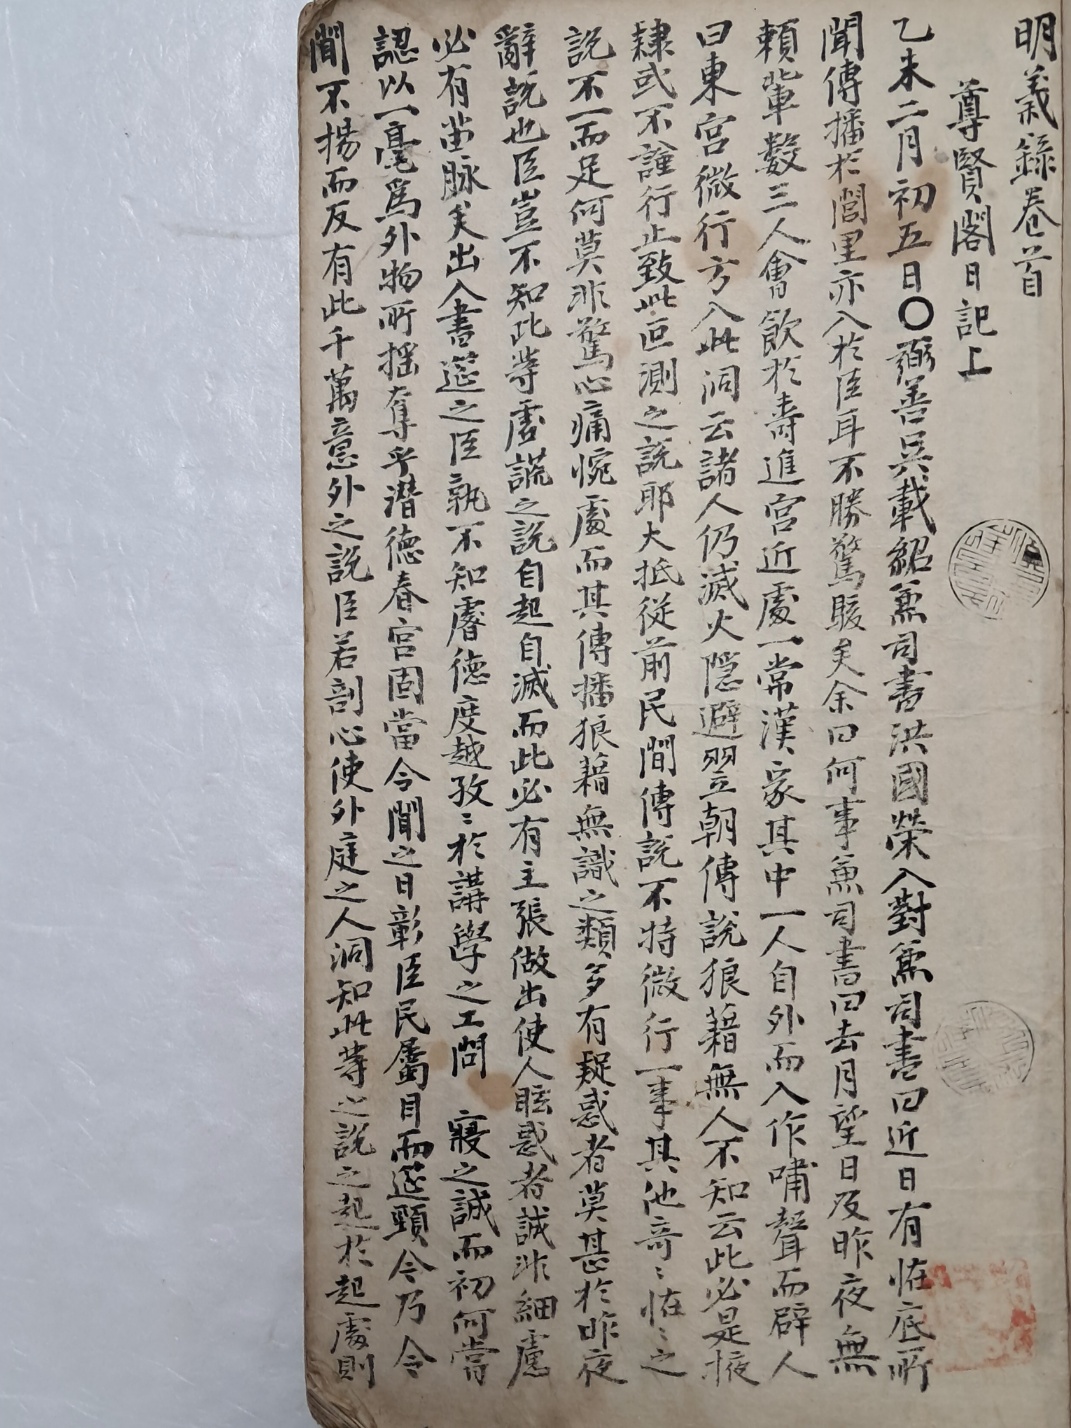 明義錄卷首
尊賢閣日記上
乙未二月初五日〇弼善吳載紹兼司書洪國榮入對兼司書曰近日有恠底所
聞傳播於閭里亦入於臣耳不勝驚駭矣余曰何事兼司書曰去月望日及昨夜無
賴輩數三人會飮於壽進宮近處一常漢家其中一人自外而入作嘯聲而辟人
曰東宮微行方入此洞云諸人仍滅火隱避翌朝傳說狼藉無人不知云此必是掖
隷或不謹行止致此叵測之說耶大抵從前民間傳說不特微行一事其他奇〻恠〻之
說不一而足何莫非驚心痛惋處而其傳播狼藉無識之類多有疑惑者莫甚於昨夜
辭說也臣豈不知此等虛謊之說自起自滅而此必有主張做出使人眩惑者誠非細慮
必有苗脉矣出入書筵之臣孰不知睿德度越孜〻於講學之工問 寢之誠而初何嘗
認以一毫爲外物所搖奪乎潛德春宮固當令聞之日彰臣民屬目而延頸今乃令
聞不揚而反有此千萬意外之說臣若剖心使外庭之人洞知此等之說之起於起處則